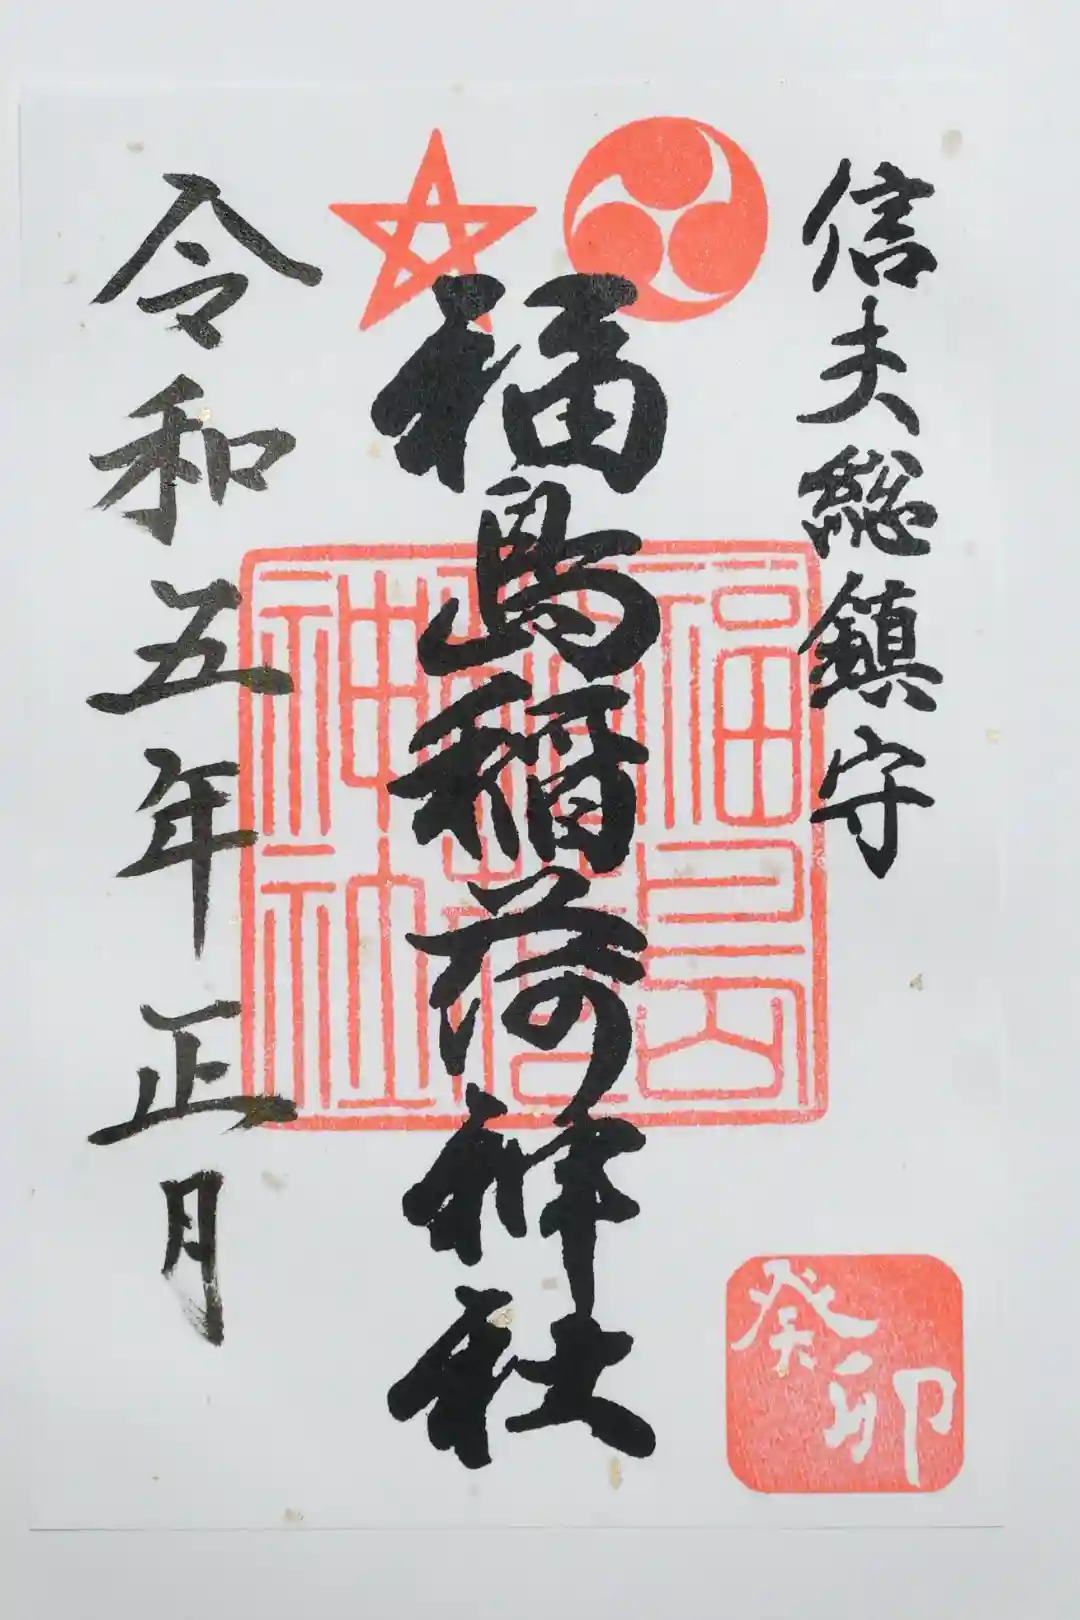 信夫総鎮守
福島稲荷神社
令和五年正月
福島
稲荷
神社
癸卯